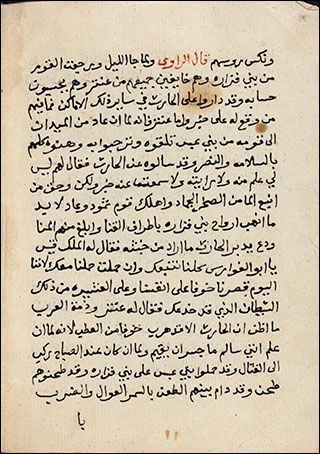 ونكس بروسهم قال الراوي ولما جا الليل ورجعت القوم
من بني فزاره وهم خايفين جميعهم من عنتر وهم يحسبون
حسابه وقد داروا على الحارث في ساير ذلك الاماكن فما فيهم
من وقع له على خبر واما عنتر فانه لما ان عاد من الميدان
الى قومه من بني عبس تلقوه وترحبوا به وهنوه كلهم
بالسلامه والنصر وقد سالوه عن الحارث فقال لهم ليس
لي علم منه ولا رايته ولا سمعت عنه خبر ولكن وحق من
انبع الما من الصخر الجماد واهلك قوم ثمود وعاد لا بد
ما انهب ارواح بني فزاره باطراف القنا وابلغ منهم المنا
ودع يدبر الحارث ما اراد من خبثه فقال له الملك قيس
يا ابو الفوارس كلنا نتبعك وان حملت حملنا معك لاننا
اليوم قصرنا خوفا على انفسنا وعلى العشيره من ذلك
الشيطان الذي قد خدعك فقال له عنتر وذمة العرب
ما اظن ان الحارث الا قد هرب خوفا من العطب لانه لما ان
علم انني سالم ما جسر ان يقيم ولما ان كان عند الصباح ركبوا
الى القتال وقد حملوا بني عبس على بني فزاره وقد طحنوهم
طحن وقد دام بينهم الطعن بالسمر العوال والضرب
با